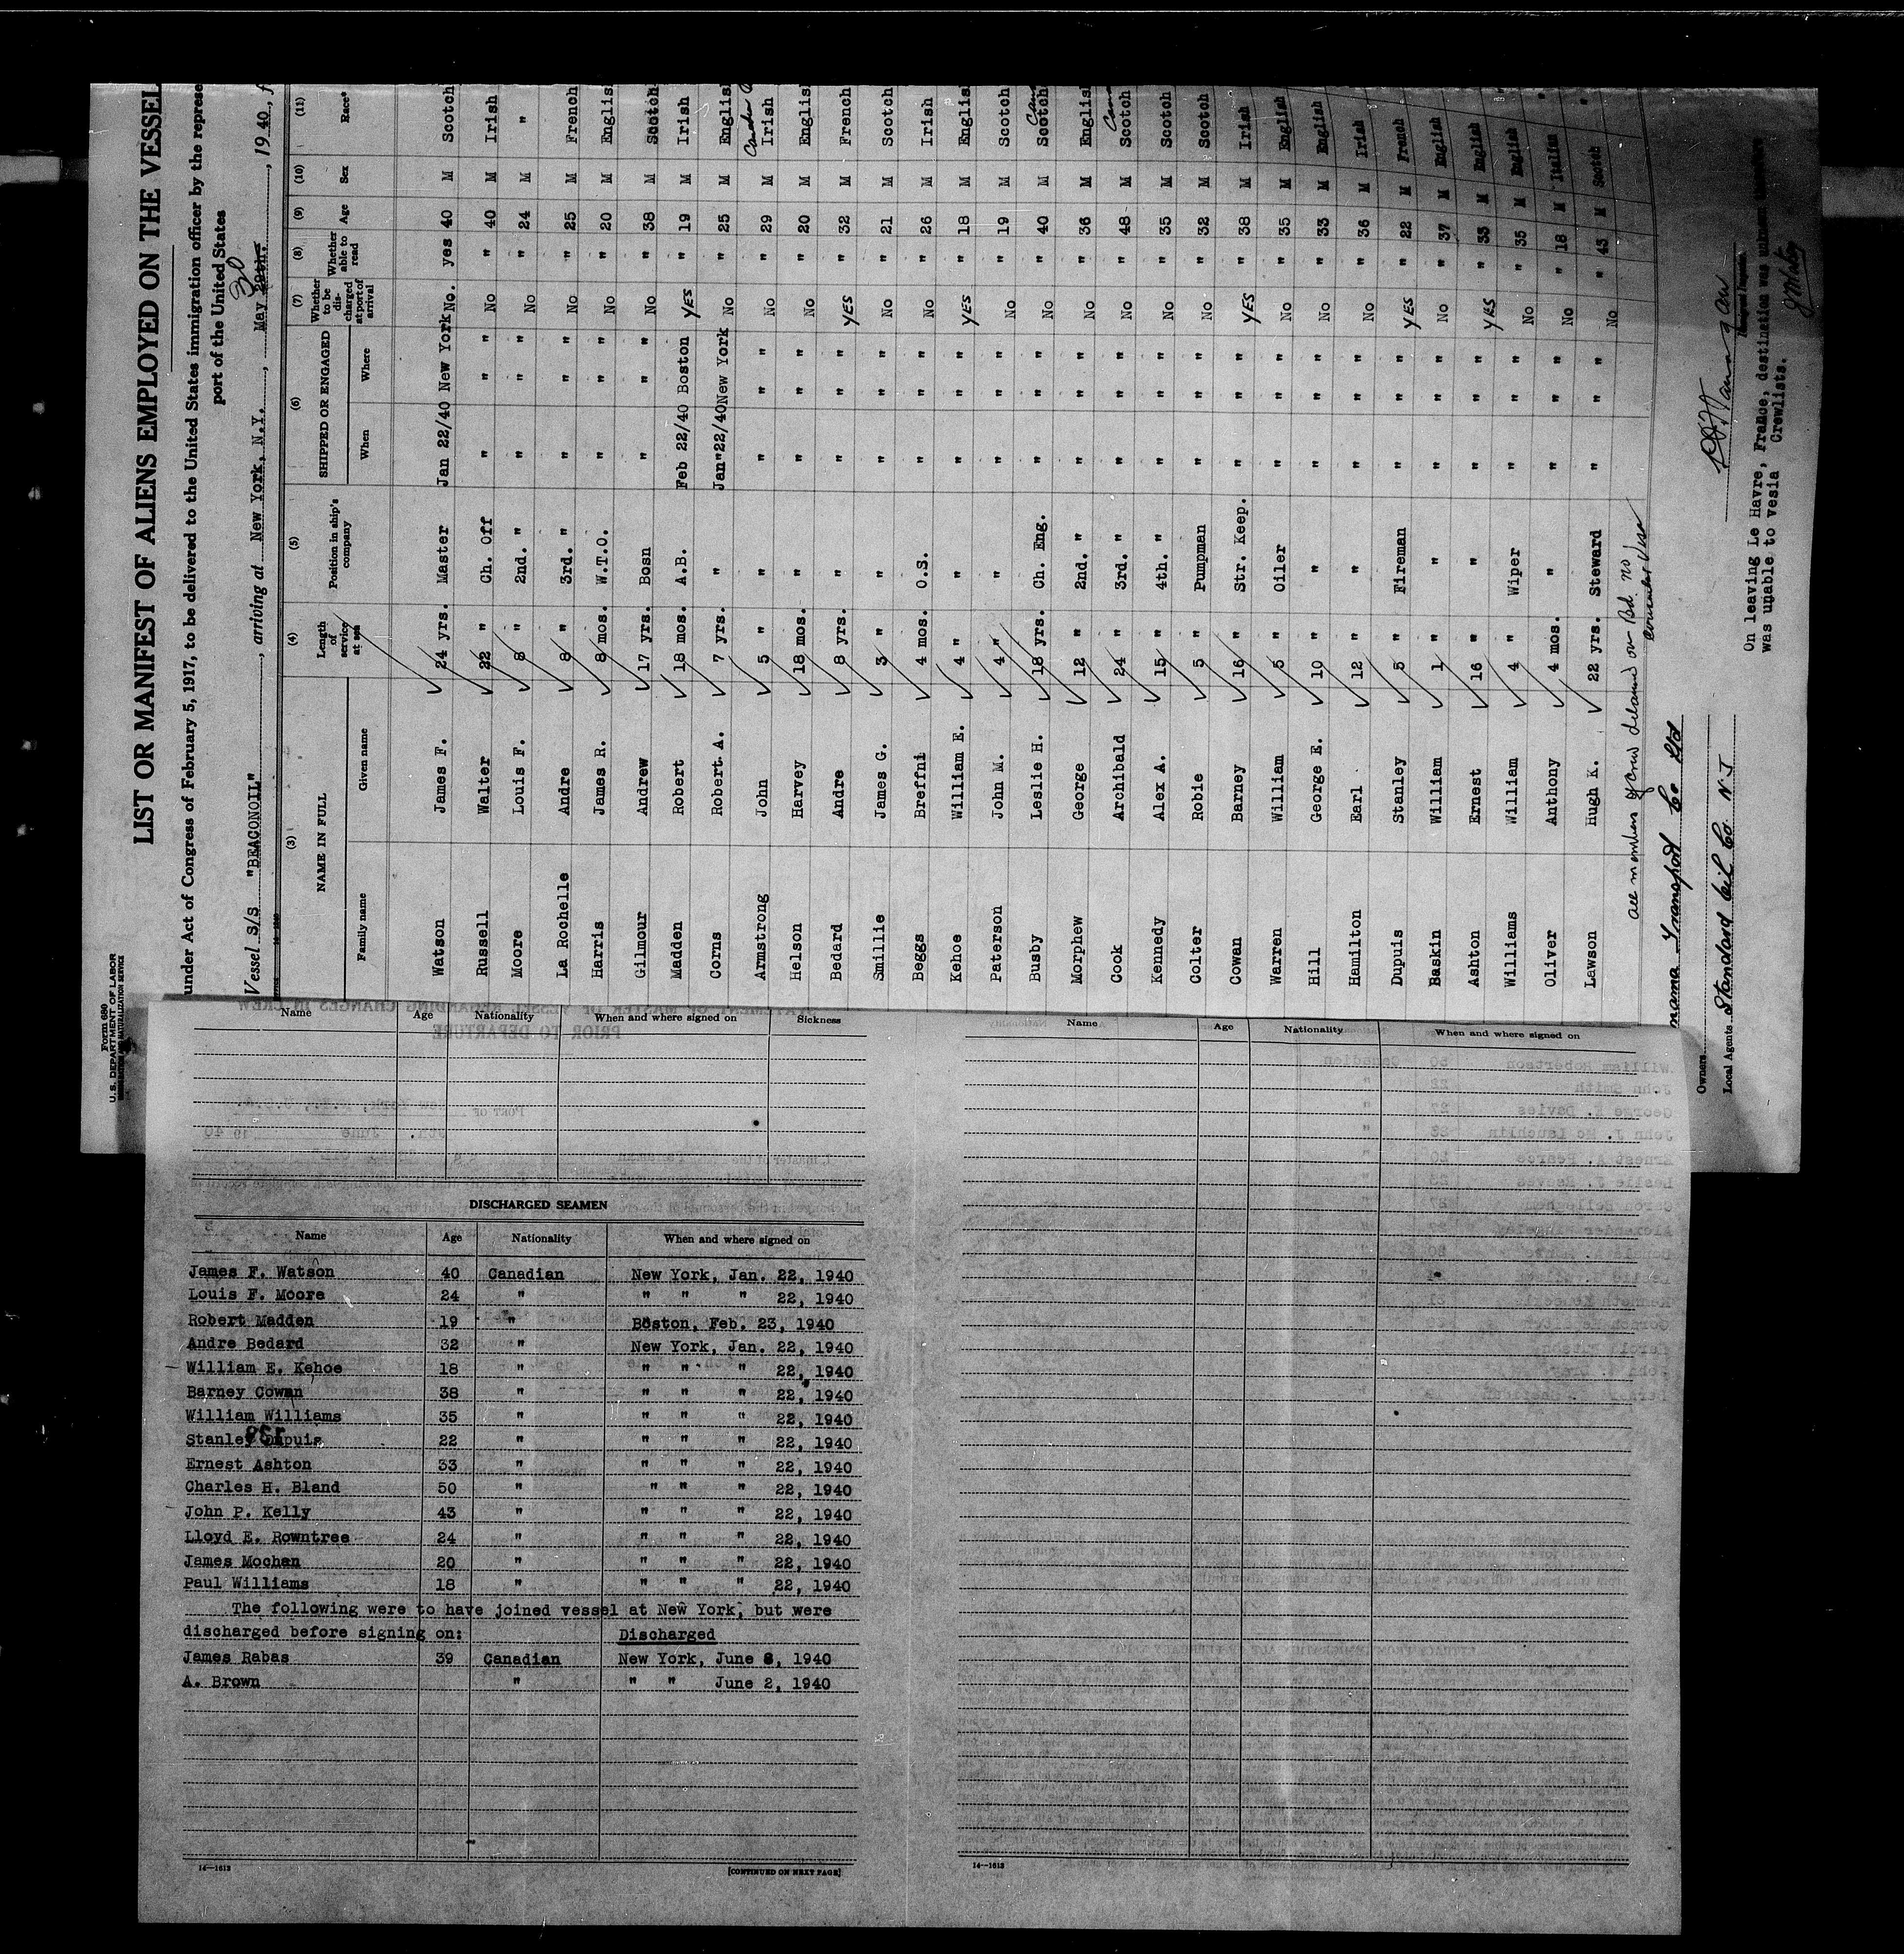 Form 680
U.S. DEPARTMENT OF LABOR
IMMIGRATION AND NATURALIZATION SERVICE
LIST OR MANIFEST OF ALIENS EMPLOYED ON THE VESSEL
under Act of Congress of February 5, 1917, to be delivered to the United States immigration officer by the represe
port of the United States
Vessel S/S "BEACONOIL", arriving at New York, N.Y., May 29th. 30, 1940, f
(3) (4) (5) (6) (7) (8) (9) (10) (11)
NAME IN FULL Length of service at sea Position in ship's company SHIPPED OR ENGAGED Whether to be discharged at port of arrival Whether able to read Age Sex Race*
Family name Given name When Where
Watson James F. 24 yrs. Master Jan 22/40 New York No. yes 40 M Scotch
Russell Walter 22 " Ch. Off " " " No " 40 M Irish
Moore Louis F. 8 " 2nd. " " " " No " 24 M "
La Rochelle Andre 8 " 3rd. " " " " No " 25 M French
Harris James R. 8 mos. W.T.O. " " " No " 20 M English
Gilmour Andrew 17 yrs. Bosn " " " No " 38 M Scotch
Madden Robert 18 mos. A.B. Feb 22/40 Boston YES " 19 M Irish
Corns Robert A. 7 yrs. " Jan"22/40New York No " 25 M English
Armstrong John 5 " " " " " No " 29 M Irish
Helson Harvey 18 mos. " " " " No " 20 M English
Bedard Andre 8 yrs. " " " " YES " 32 M French
Smillie James G. 3 " " " " " No " 21 M Scotch
Beggs Breffni 4 mos. O.S. " " " No " 26 M Irish
Kehoe William E. 4 " " " " " YES " 18 M English
Paterson John M. 4 " " " " " No " 19 M Scotch
Busby Leslie H. 18 yrs. Ch. Eng. " " " No " 40 M Scotch
Morphew George 12 " 2nd. " " " " No " 36 M English
Cook Archibald 24 " 3rd. " " " " No " 48 M Scotch
Kennedy Alex A. 15 " 4th. " " " " No " 35 M Scotch
Colter Robie 5 " Pumpman " " " No " 32 M Scotch
Cowan Barney 16 " Str. Keep. " " " YES " 38 M Irish
Warren William 5 " Oiler " " " No " 35 M English
Hill George E. 10 " " " " " No " 33 M English
Hamilton Earl 12 " " " " " No " 36 M Irish
Dupuis Stanley 5 " Fireman " " " YES " 22 M French
Baskin William 1 " " " " " No " 37 M English
Ashton Ernest 16 " " " " " YES " 33 M English
Williams William 4 " Wiper " " " No " 35 M English
Oliver Anthony 4 mos. " " " " No " 18 M Italian
Lawson Hugh K. 22 yrs. Steward " " " No " 43 M Scotch
all members of crew on Bd. no visa
Owners nama Transport Co Ltd
Local Agents Standard Oil Co. N.J
On leaving Le Havre, France, destination was unknown therefore
was unable to vesia Crewlists.
Name Age Nationality When and where signed on Sickness
DISCHARGED SEAMEN
Name Age Nationality When and where signed on
James F. Watson 40 Canadian New York, Jan. 22, 1940
Louis F. Moore 24 " " " " 22, 1940
Robert Madden 19 " Boston, Feb. 23, 1940
Andre Bedard 32 " New York, Jan. 22, 1940
William E. Kehoe 18 " " " " 22, 1940
Barney Cowan 38 " " " " 22, 1940
William Williams 35 " " " " 22, 1940
Stanley Dupuis 22 " " " " 22, 1940
Ernest Ashton 33 " " " " 22, 1940
Charles H. Bland 50 " " " " 22, 1940
John P. Kelly 43 " " " " 22, 1940
Lloyd E. Rowntree 24 " " " " 22, 1940
James Mochan 20 " " " " 22, 1940
Paul Williams 18 " " " " 22, 1940
The following were to have joined vessel at New York, but were
discharged before signing on: Discharged
James Rabas 39 Canadian New York, June 8, 1940
A. Brown " " " June 2, 1940
14—1613 [CONTINUED ON NEXT PAGE]
Name Age Nationality When and where signed on
14—1613